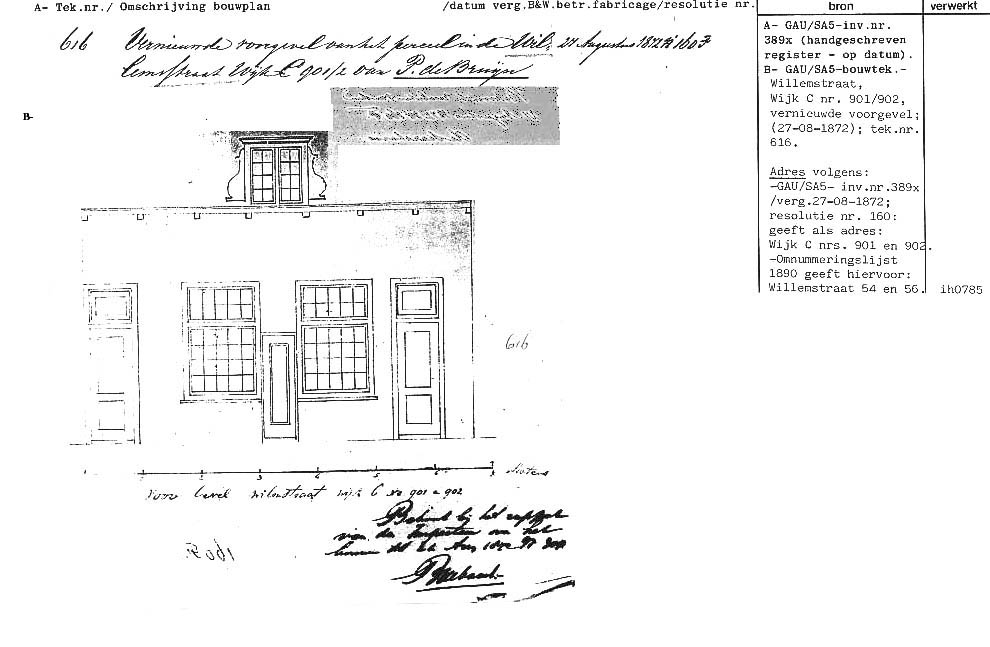 A- Tek.nr./ Omschrijving bouwplan /datum verg.B&W.betr.fabricage/resolutie nr.
bron
verwerkt
616 Vernieuwde voorgevel van het perceel in de Wil- 27 Augustus 1872
lemstraat Wijk C 901/2 van P. de Bruijn
B-
616
Voor Gevel wilemstraat wijk C No 901 & 902
Behoort bij het rapport
van den Inspecteur van het
A- GAU/SA5-inv.nr.
389x (handgeschreven
register - op datum).
B- GAU/SA5-bouwtek.-
Willemstraat,
Wijk C nr. 901/902,
vernieuwde voorgevel;
(27-08-1872); tek.nr.
616.
Adres volgens:
-GAU/SA5- inv.nr.389x
/verg.27-08-1872;
resolutie nr. 160:
geeft als adres:
Wijk C nrs. 901 en 902.
-Omnummeringslijst
1890 geeft hiervoor:
Willemstraat 54 en 56.
ih0785